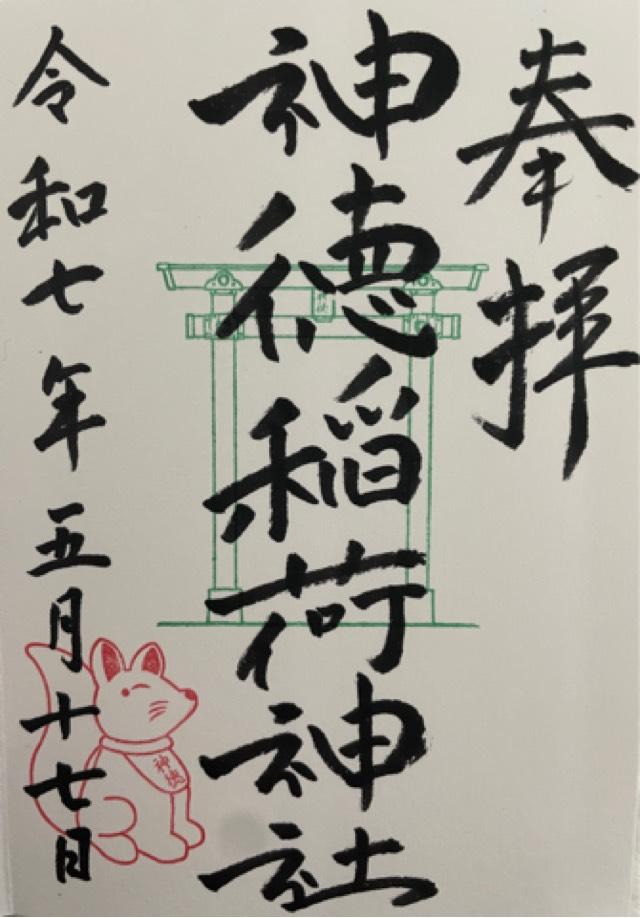 奉拝
神徳稲荷神社
令和七年五月十七日
神徳